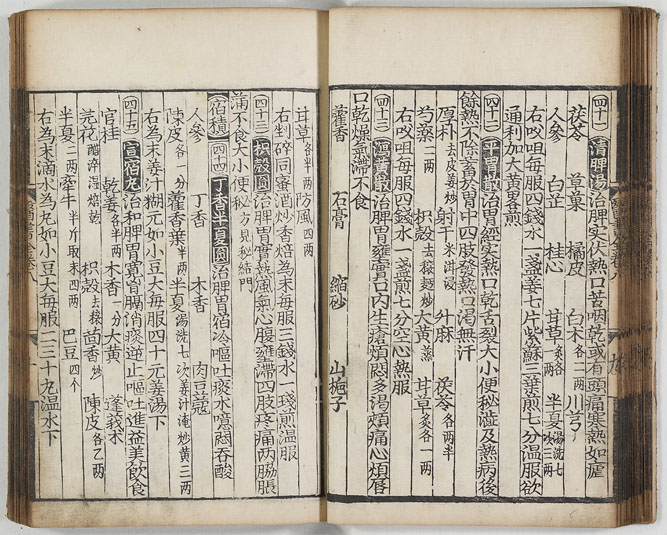 (四十一)清脾湯治脾實伏熱口苦咽乾或有頭痛寒熱如瘧
茯苓 草菓 橘皮 白朮各二兩川芎
人參 白芷 桂心 甘草炙各一兩半夏湯洗七次三兩
右㕮咀每服四錢水一盞姜七片紫蘇三葉煎七分溫服欲
通利加大黃畧煎
(四十二)平胃散治胃經實熱口乾舌裂大小便秘澁及熱病後
餘熱不除蓄於胃中四肢發熱口渴無汗
厚朴去皮姜炒射干米泔浸升麻 茯苓各兩半
芍藥二兩 枳殼去穰麩炒大黃蒸 甘草炙各一兩
右㕮咀每服四錢水一盞煎七分空心熱服
(四十三)瀉黃散治脾胃壅實口內生瘡煩悶多渴頰痛心煩唇
口乾燥氣滯不食
藿香 石膏 縮砂 山梔子
甘草各半兩防風四兩
右剉碎同蜜酒炒香焙為末每服三錢水一琖煎溫服
(四十三)枳殼圓治脾胃實熱風氣心腹壅滯四肢疼痛兩脇脹
滿不食大小便秘方見秘結門
宿積(四十四)丁香半夏圓治脾胃宿冷嘔吐痰水噫悶吞酸
人參 丁香 木香 肉豆蔻
陳皮各一分藿香葉半兩半夏湯洗七次姜汁淹炒黃三兩
右為末姜汁糊元如小豆大每服四十元姜湯下
(四十五)宿丸治和脾胃寬胃膈消痰逆止嘔吐進益美飲食
官桂 乾姜各半兩木香一分大黃 蓬莪朮
芫花醋淬濕焙乾 枳殼去穰茴香炒 陳皮各乙兩
半夏二兩牽牛半斤取末四兩 巴豆四个
右為末滴水為丸如小豆大每服二三十丸溫水下